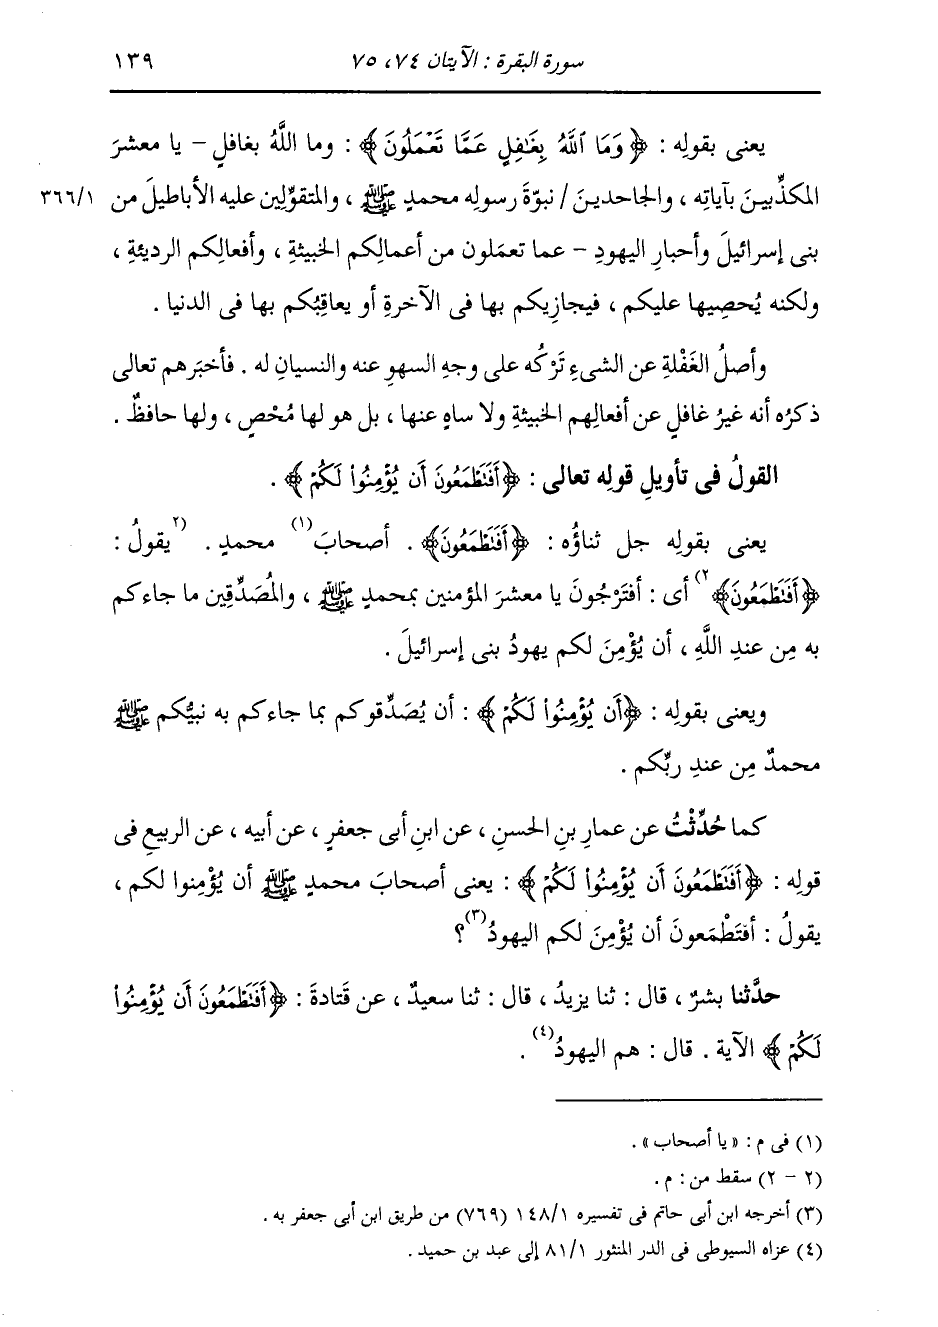 سورة البقرة : الآيتان ٧٤، ٧٥ ١٣٩
يعنى بقولِه : ﴿وَمَا ٱللَّهُ بِغَٰفِلٍ عَمَّا تَعْمَلُونَ﴾ : وما اللَّهُ بغافلٍ – يا معشرَ
المكذِّبينَ بآياتِه ، والجاحدينَ / نبوّةَ رسولِه محمدٍ ﷺ ، والمتقوِّلين عليه الأباطيلَ من ٣٦٦/١
بنى إسرائيلَ وأحبارِ اليهودِ – عما تعمَلون من أعمالِكم الخبيثةِ ، وأفعالِكم الرديئةِ ،
ولكنه يُحصِيها عليكم ، فيجازِيكم بها فى الآخرةِ أو يعاقِبُكم بها فى الدنيا .
وأصلُ الغَفْلةِ عن الشىءِ تَرْكُه على وجهِ السهوِ عنه والنسيانِ له . فأخبَرهم تعالى
ذكرُه أنه غيرُ غافلٍ عن أفعالِهم الخبيثةِ ولا ساهٍ عنها ، بل هو لها مُحْصٍ ، ولها حافظٌ .
القولُ فى تأويلِ قولِه تعالى : ﴿أَفَتَطْمَعُونَ أَن يُؤْمِنُوا۟ لَكُمْ﴾ .
يعنى بقولِه جل ثناؤُه : ﴿أَفَتَطْمَعُونَ﴾ . أصحابَ(١) محمدٍ . (٢يقولُ :
﴿أَفَتَطْمَعُونَ﴾٢) أى : أفتَرْجُونَ يا معشرَ المؤمنين بمحمدٍ ﷺ ، والمُصَدِّقِين ما جاءكم
به مِن عندِ اللَّهِ ، أن يُؤْمِنَ لكم يهودُ بنى إسرائيلَ .
ويعنى بقولِه : ﴿أَن يُؤْمِنُوا۟ لَكُمْ﴾ : أن يُصَدِّقوكم بما جاءكم به نبيُّكم ﷺ
محمدٌ مِن عندِ ربِّكم .
كما حُدِّثْتُ عن عمارِ بنِ الحسنِ ، عن ابنِ أبى جعفرٍ ، عن أبيه ، عن الربيعِ فى
قولِه : ﴿أَفَتَطْمَعُونَ أَن يُؤْمِنُوا۟ لَكُمْ﴾ : يعنى أصحابَ محمدٍ ﷺ أن يُؤْمِنوا لكم ،
يقولُ : أفتَطْمَعونَ أن يُؤْمِنَ لكم اليهودُ(٣)؟
حدَّثنا بشرٌ ، قال : ثنا يزيدُ ، قال : ثنا سعيدٌ ، عن قَتادةَ : ﴿أَفَتَطْمَعُونَ أَن يُؤْمِنُوا۟
لَكُمْ﴾ الآية . قال : هم اليهودُ(٤) .
(١) فى م : « يا أصحاب » .
(٢ – ٢) سقط من : م .
(٣) أخرجه ابن أبى حاتم فى تفسيره ١٤٨/١ (٧٦٩) من طريق ابن أبى جعفر به .
(٤) عزاه السيوطى فى الدر المنثور ٨١/١ إلى عبد بن حميد .